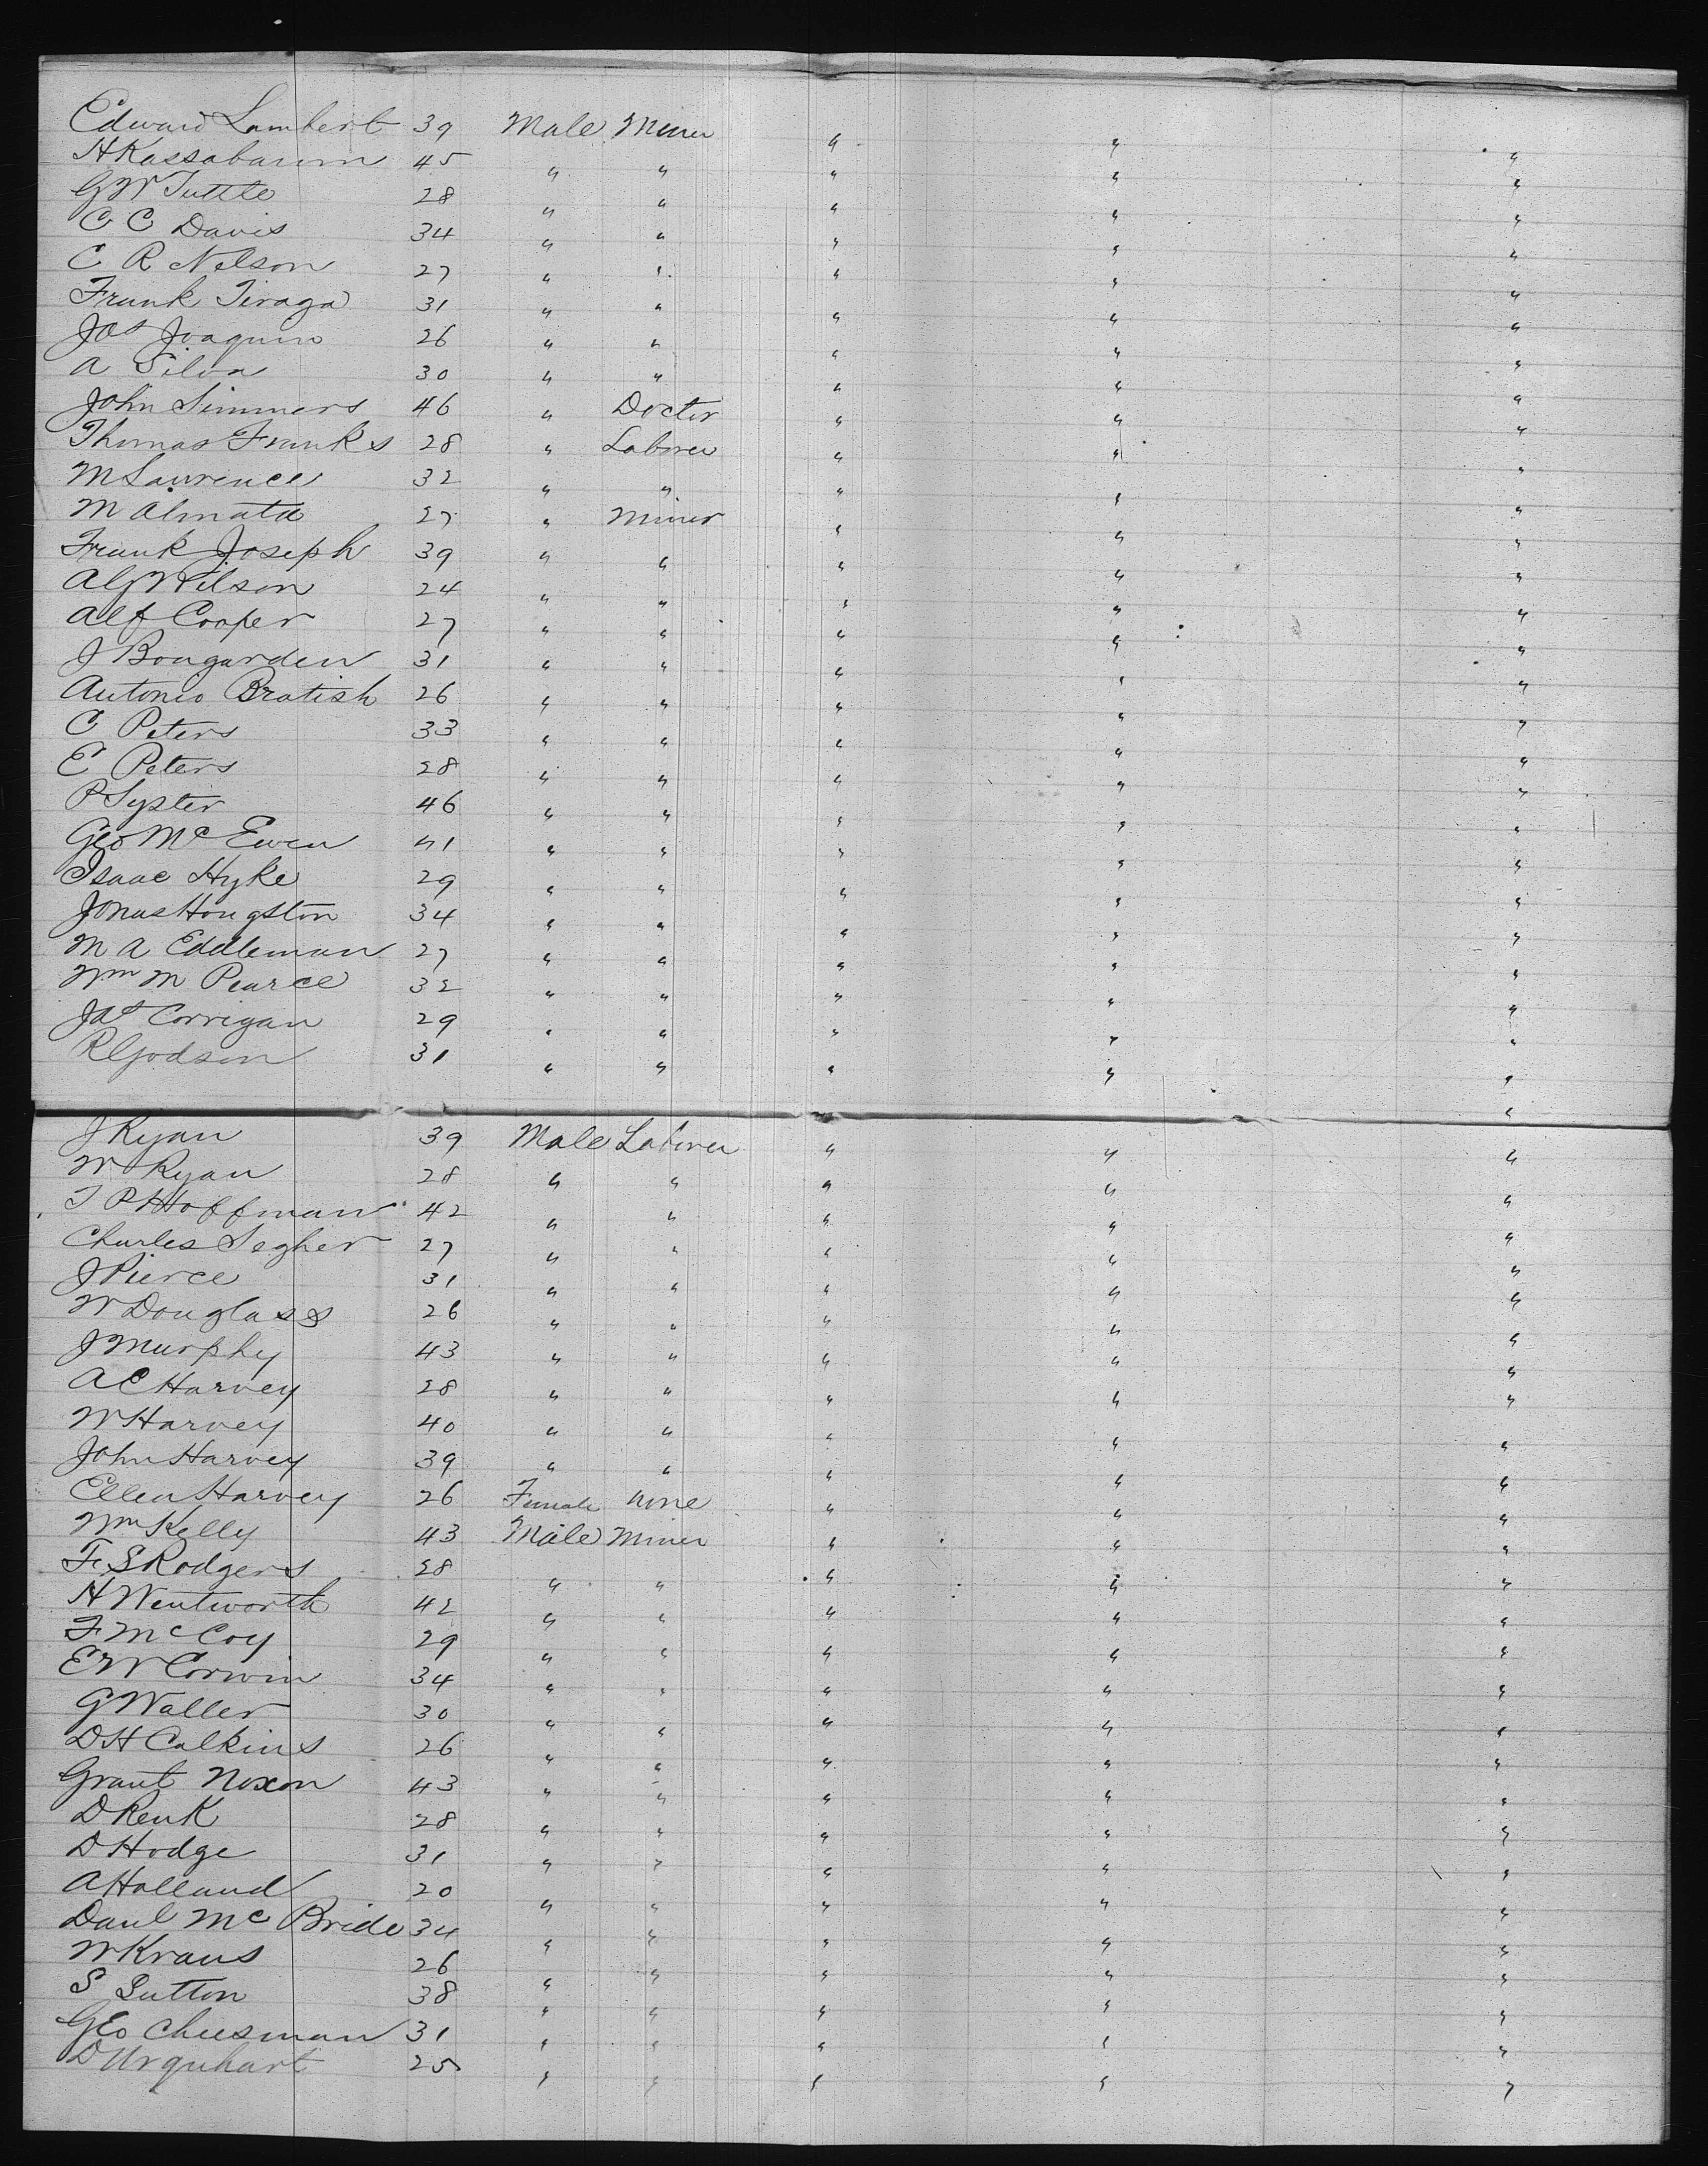 Edward Lambert 39 Male Miner " " "
H Kassabaum 45 " " " " "
G W Tuttle 28 " " " " "
C C Davis 34 " " " " "
C R Nelson 27 " " " " "
Frank Tiraga 31 " " " " "
Jos Joaquin 26 " " " " "
A Silva 30 " " " " "
John Simmers 46 " Doctor " " "
Thomas Franks 28 " Laborer " " "
M Lawrence 32 " " " " "
M Almata 27 " Miner " " "
Frank Joseph 39 " " " " "
A G Wilson 24 " " " " "
Alf Cooper 27 " " " " "
J Bongarden 31 " " " " "
Antonio Bratish 26 " " " " "
C Peters 33 " " " " "
E Peters 28 " " " " "
P Syster 46 " " " " "
Geo Mc Ewen 41 " " " " "
Isaac Hyke 29 " " " " "
Jonas Hougston 34 " " " " "
M A Eddleman 27 " " " " "
Wm M Pearce 32 " " " " "
Jas Corrigan 29 " " " " "
R Godson 31 " " " " "
J Ryan 39 Male Laborer " " "
W Ryan 28 " " " " "
T P Hoffman 42 " " " " "
Charles Segher 27 " " " " "
J Pierce 31 " " " " "
W Douglass 26 " " " " "
J Murphy 43 " " " " "
A C Harvey 28 " " " " "
W Harvey 40 " " " " "
John Harvey 39 " " " " "
Ellen Harvey 26 Female none " " "
Wm Kelly 43 Male Miner " " "
F. S Rodgers 28 " " " " "
H Wentworth 42 " " " " "
F McCoy 29 " " " " "
E W Corwin 34 " " " " "
G Waller 30 " " " " "
D H Calkins 26 " " " " "
Grant Noxon 43 " " " " "
D Renk 28 " " " " "
D Hodge 31 " " " " "
A Holland 20 " " " " "
Danl Mc Bride 34 " " " " "
W Kraus 26 " " " " "
S Sutton 38 " " " " "
Geo Cheesman 31 " " " " "
D Urquhart 25 " " " " "